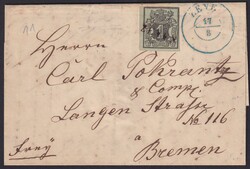 11
CELLE
17
8
Herrn
Carl Pokrantz
& Comp.
Langen Straße
No 116
frey
Bremen